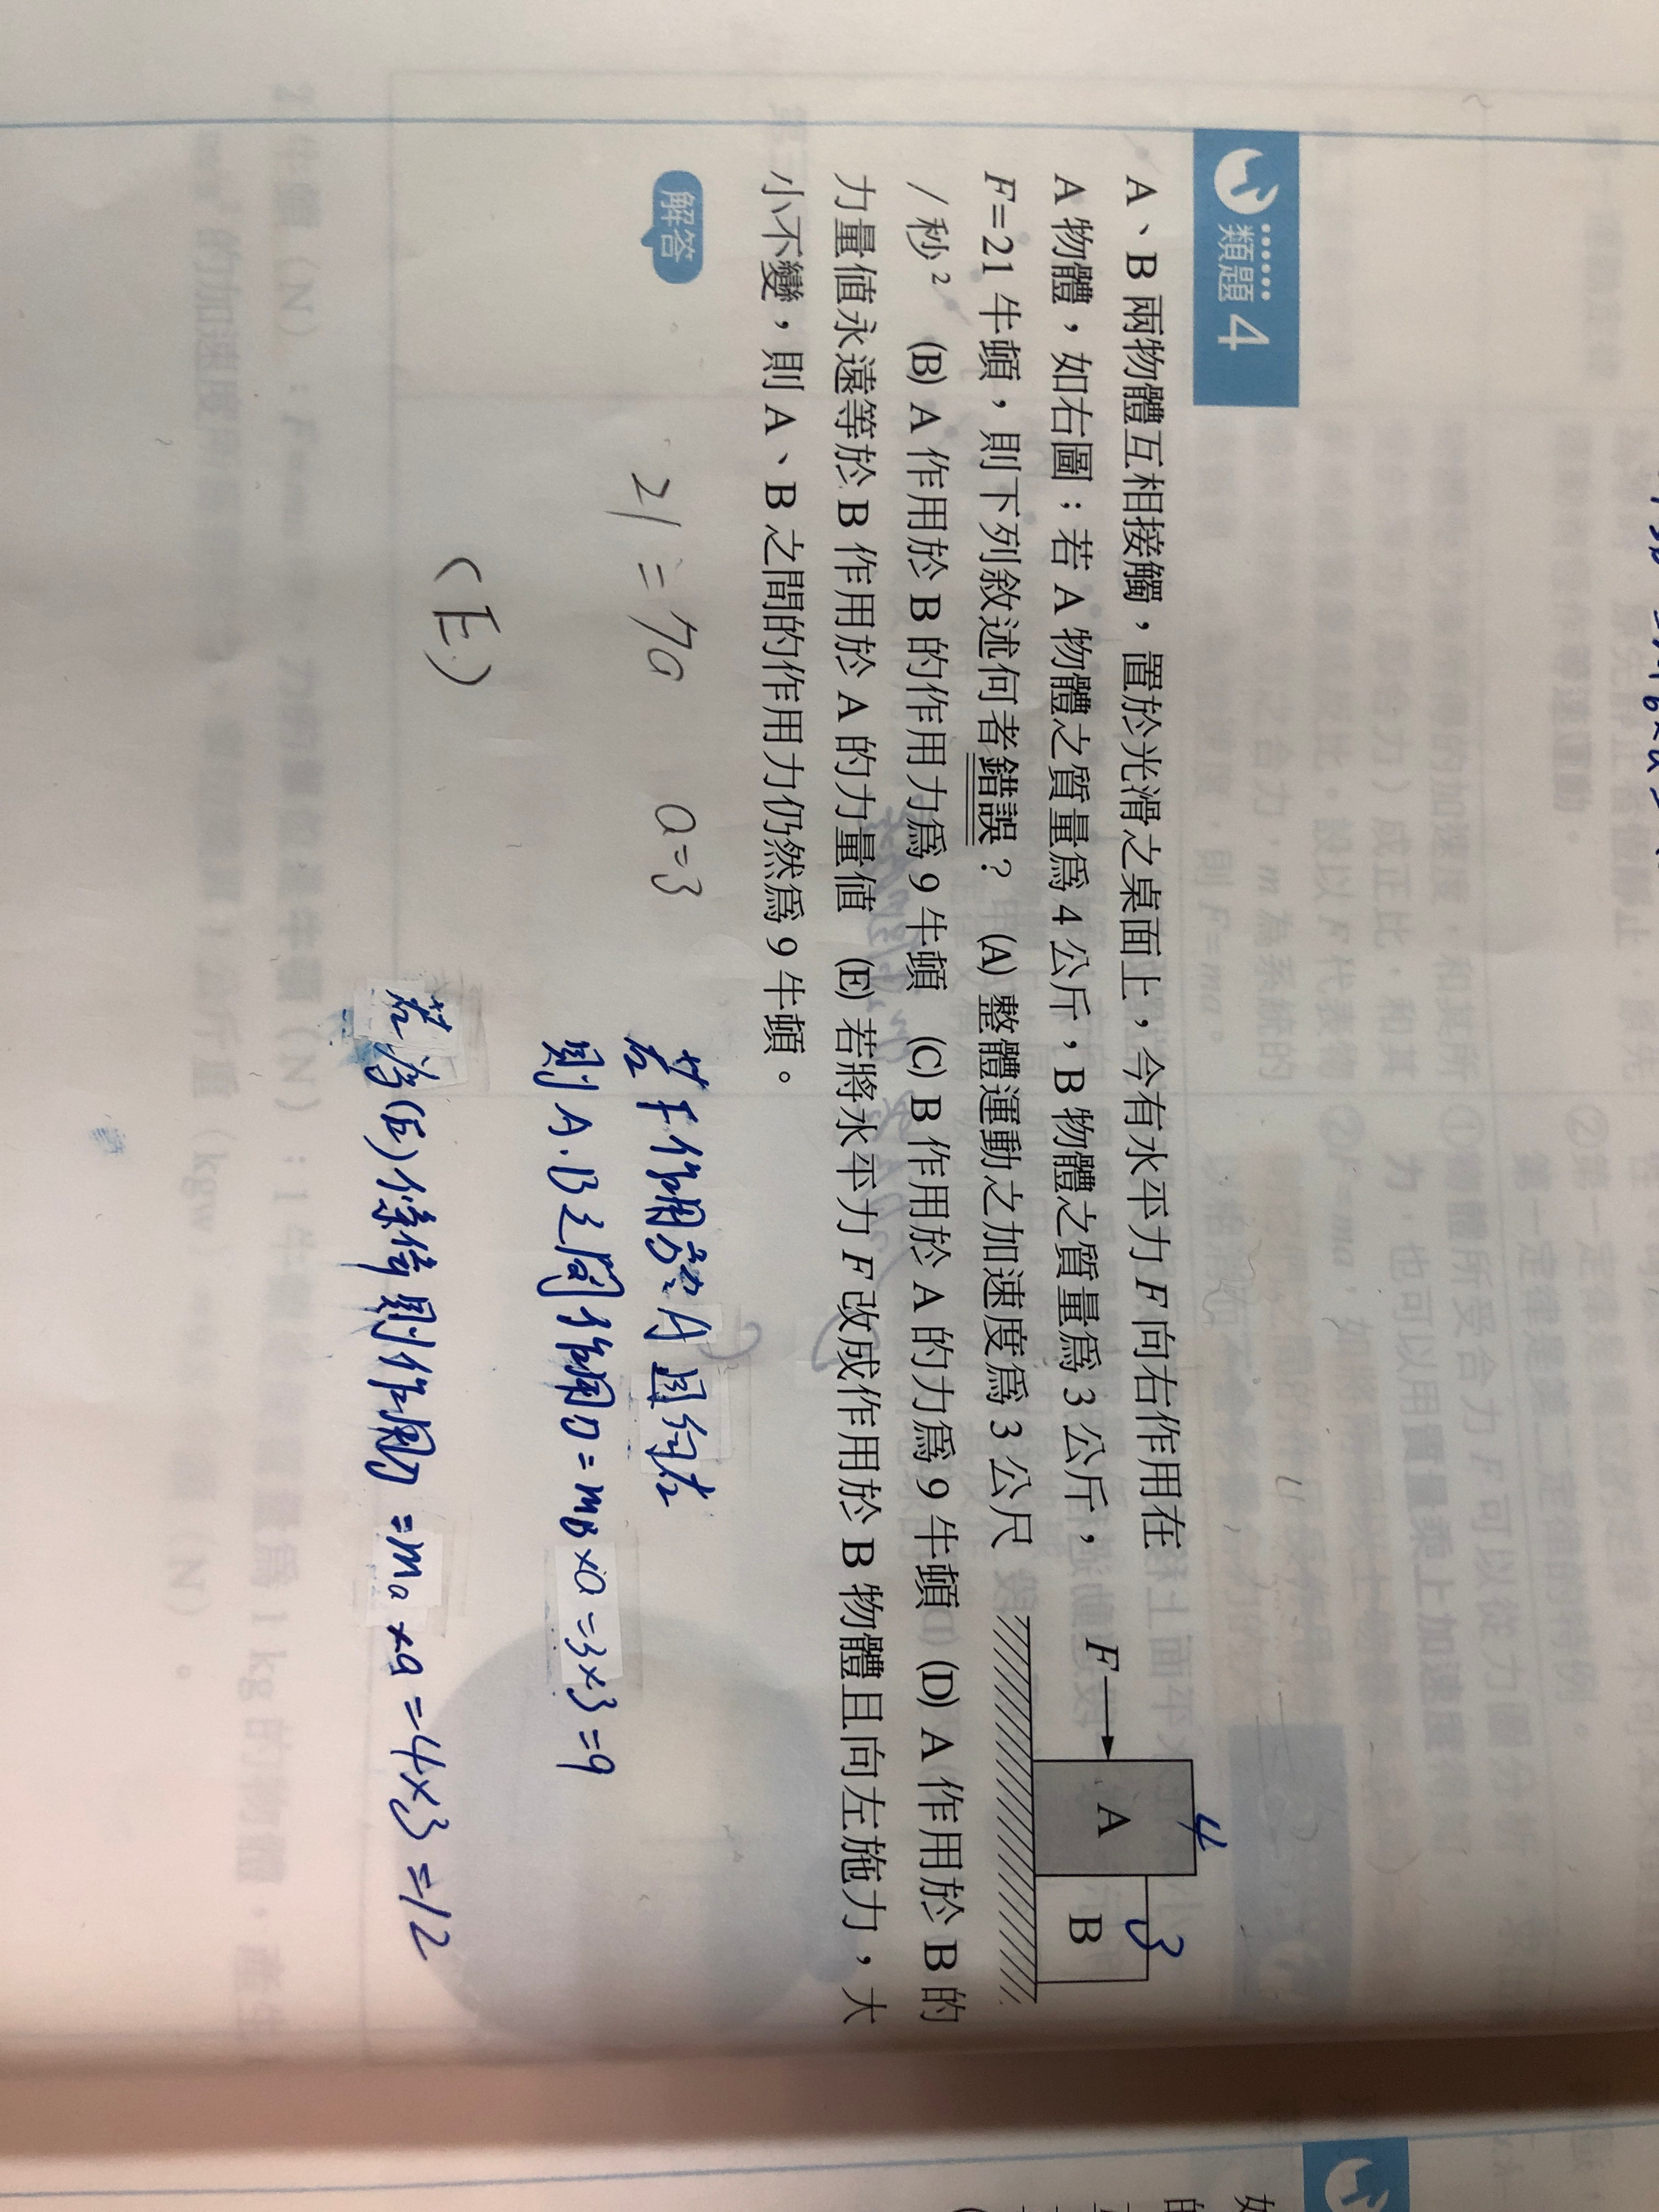 類題 4
A、B 兩物體互相接觸，置於光滑之桌面上，今有水平力 F 向右作用在
A 物體，如右圖；若 A 物體之質量為 4 公斤，B 物體之質量為 3 公斤，
F=21 牛頓，則下列敘述何者錯誤？ (A) 整體運動之加速度為 3 公尺
/秒² (B) A 作用於 B 的作用力為 9 牛頓 (C) B 作用於 A 的力為 9 牛頓 (D) A 作用於 B 的
力量值永遠等於 B 作用於 A 的力量值 (E) 若將水平力 F 改成作用於 B 物體且向左施力，大
小不變，則 A、B 之間的作用力仍然為 9 牛頓。
F
A
B
4
3
解答
21 = 7a a=3
(E)
若 F 作用於 A 且向右
則 A.B 之間作用力 = mB × a = 3×3 = 9
若為 (E) 條件則作用力 = ma × a = 4×3 = 12